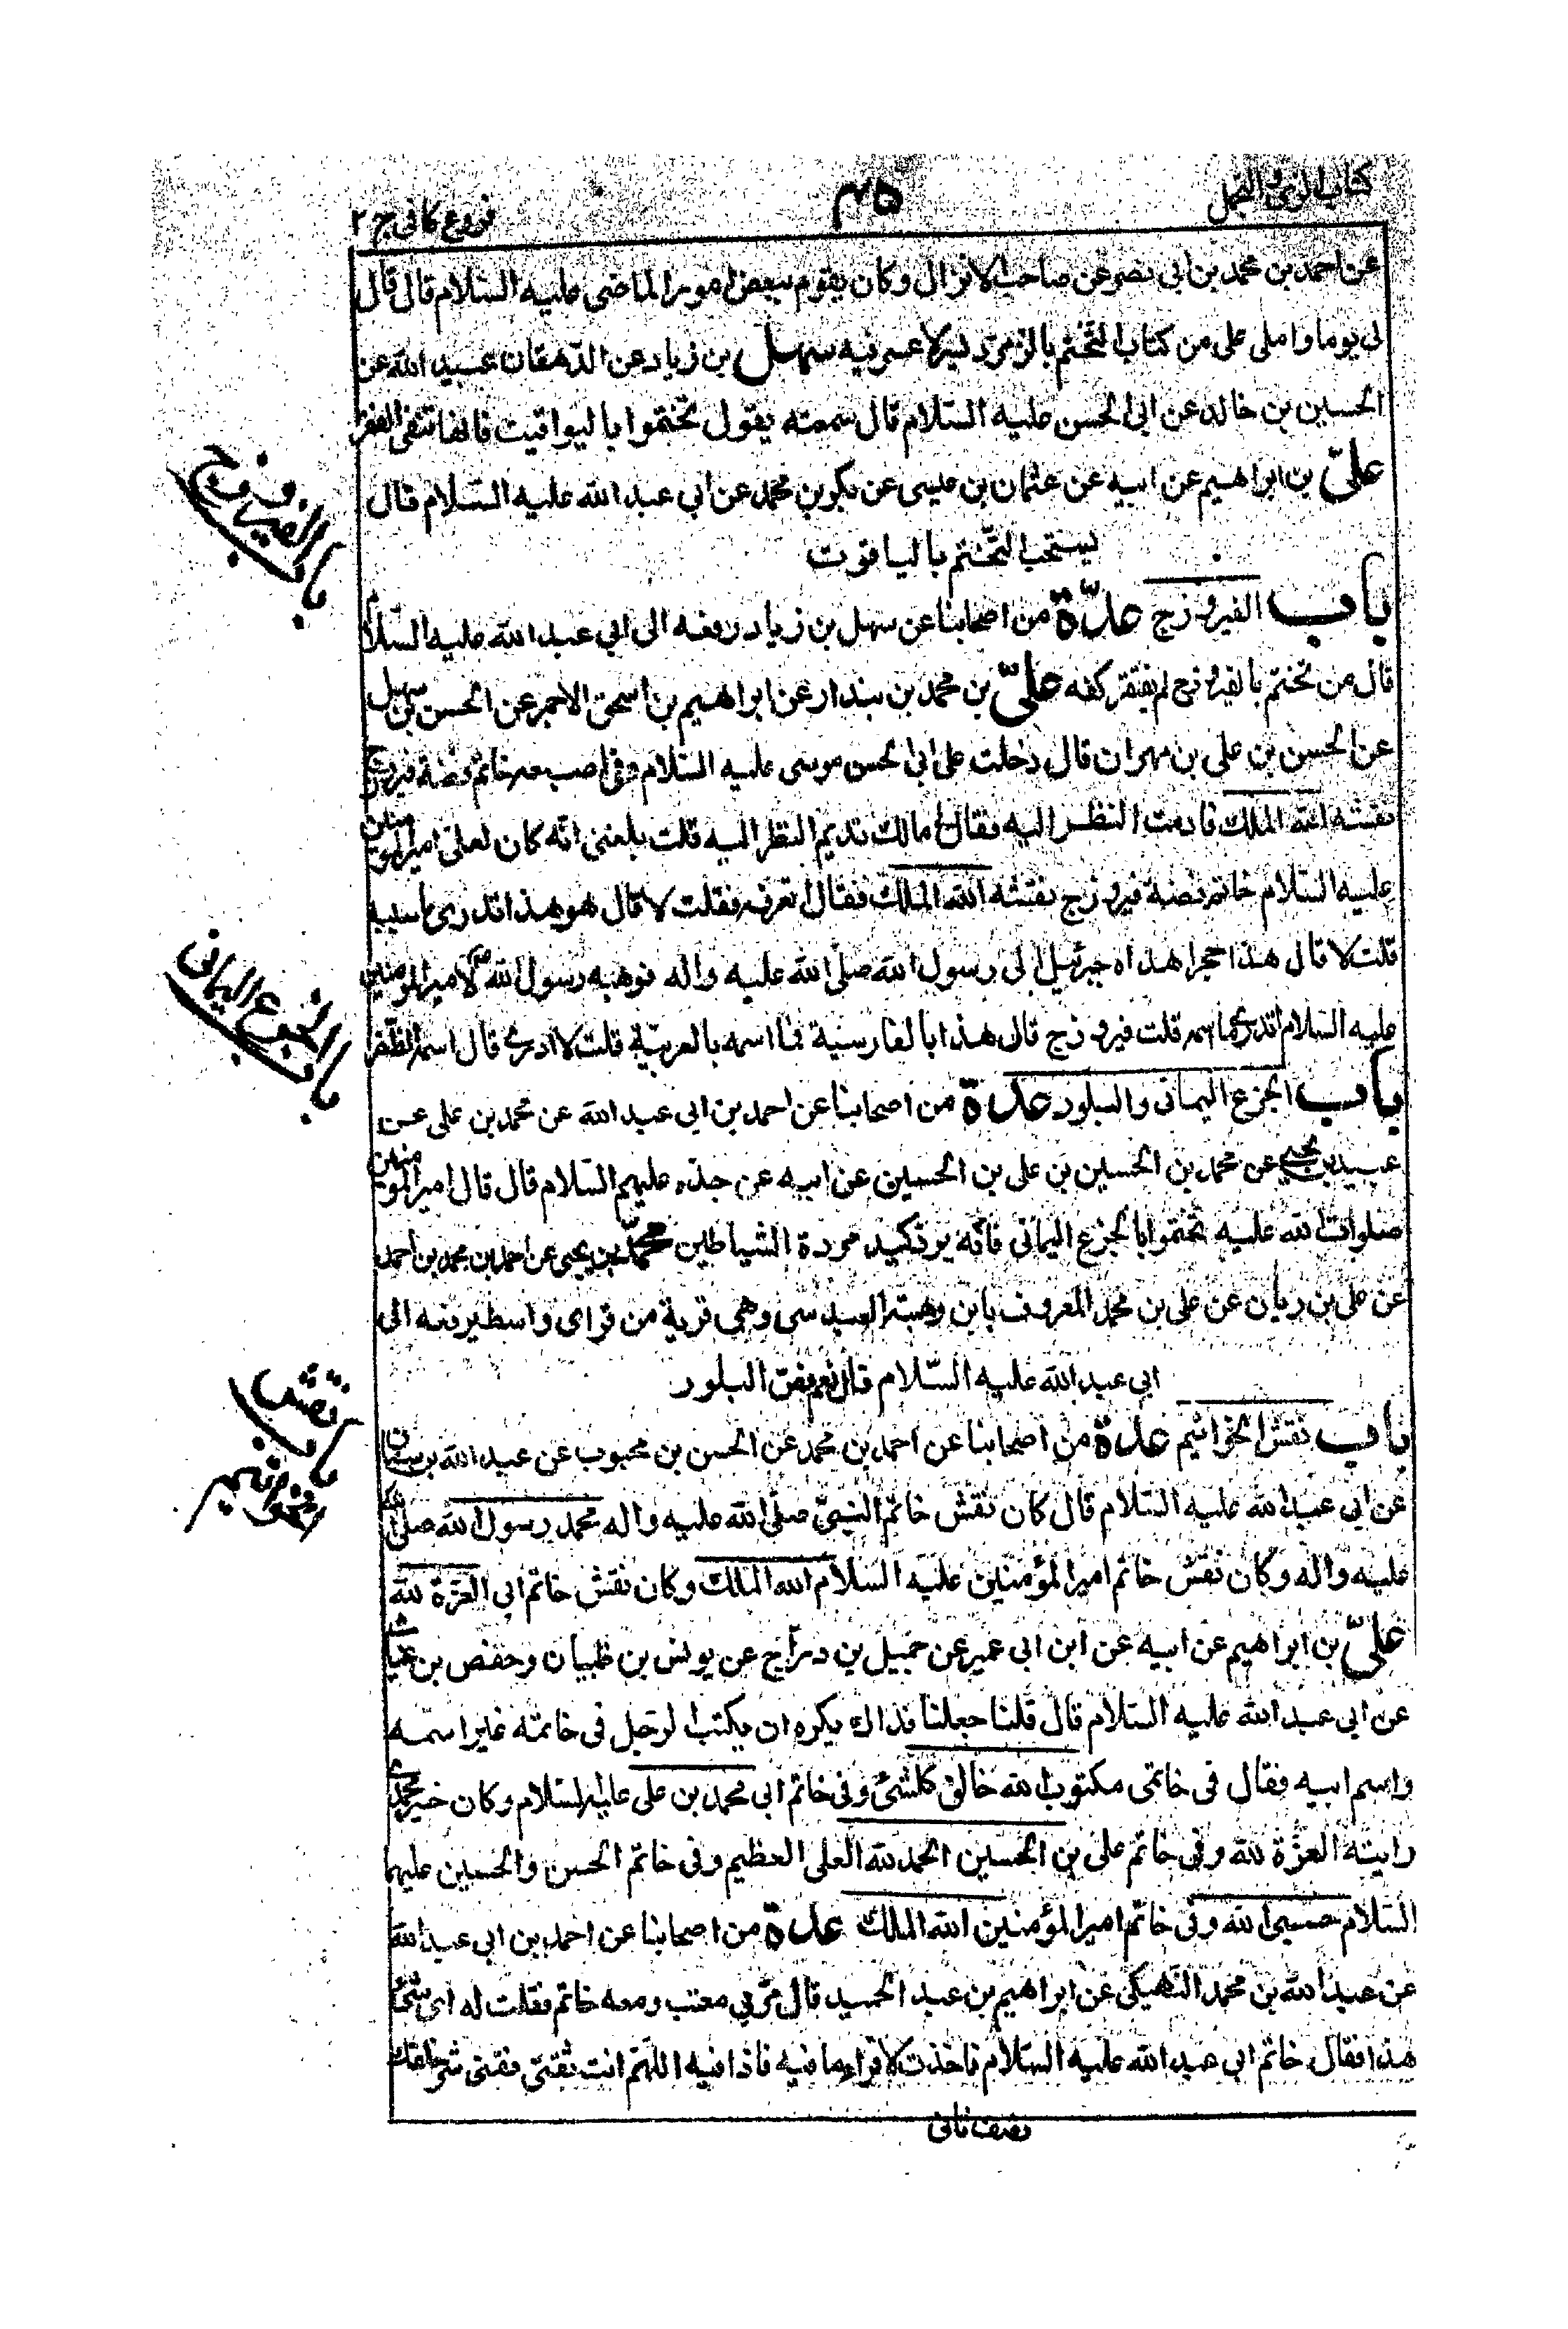 كتاب الزى والتجمل
٣٥
فروع كافى ج ٢
عن احمد بن محمد بن ابى نصر عن صاحب الانزال وكان يقوم ببعض امور الماضى عليه السّلام قال قال
لى يوما واملى على من كتاب التختم بالزمرّد يسر لا عسر فيه سهل بن زياد عن الدّهقان عبيد الله عن
الحسين بن خالد عن ابى الحسن عليه السّلام قال سمعته يقول تختموا باليواقيت فانها تنفى الفقر
علىّ بن ابراهيم عن ابيه عن عثمان بن عيسى عن بكر بن محمد عن ابى عبد الله عليه السّلام قال
يستحب التختم بالياقوت
باب الفيروزج عدّة من اصحابنا عن سهل بن زياد رفعه الى ابى عبد الله عليه السّلام
قال من تختم بالفيروزج لم يفتقر كفه علىّ بن محمد بن بندار عن ابراهيم بن اسحق الاحمر عن الحسن بن سهل
عن الحسن بن على بن مهران قال دخلت على ابى الحسن موسى عليه السّلام وفى اصبعه خاتم فصّه فيروزج
نقشه الله الملك فادمت النظر اليه فقال لى مالك تديم النظر اليه قلت بلغنى انّه كان لعلى امير المومنين
عليه السّلام خاتم فصّه فيروزج نقشه الله الملك فقال اتعرفه فقلت لا قال هو هذا اتدرى ما سببه
قلت لا قال هذا حجر اهداه جبرئيل الى رسول الله صلّى الله عليه واله فوهبه رسول الله ص لامير المومنين
عليه السّلام اتدرى ما اسمه قلت فيروزج قال هذا بالفارسيّة فما اسمه بالعربيّة قلت لا ادرى قال اسمه الظّفر
باب الجزع اليمانى والبلور عدّة من اصحابنا عن احمد بن ابى عبد الله عن محمد بن على عن
عبيد بن يحيى عن محمد بن الحسين بن على بن الحسين عن ابيه عن جدّه عليهم السّلام قال قال امير المومنين
صلوات الله عليه تختموا بالجزع اليمانى فانّه يرد كيد مردة الشياطين محمّد بن يحيى عن احمد بن محمد بن احمد
عن على بن ريان عن على بن محمد المعروف بابن وهبة العبدسى وهى قرية من قراى واسط يرفعه الى
ابى عبد الله عليه السّلام قال نعم الفصّ البلور
باب نقش الخواتيم عدّة من اصحابنا عن احمد بن محمد عن الحسن بن محبوب عن عبد الله بن سنان
عن ابى عبد الله عليه السّلام قال كان نقش خاتم النبىّ صلّى الله عليه واله محمد رسول الله صلّى الله
عليه واله وكان نقش خاتم امير المؤمنين عليه السّلام الله الملك وكان نقش خاتم ابى العزّة لله
علىّ بن ابراهيم عن ابيه عن ابن ابى عمير عن جميل بن درّاج عن يونس بن ظبيان وحفص بن غياث
عن ابى عبد الله عليه السّلام قال قلنا جعلنا فداك يكره ان يكتب الرّجل فى خاتمه غير اسمه
واسم ابيه فقال فى خاتمى مكتوب الله خالق كلشئ وفى خاتم ابى محمد بن على عليه السّلام وكان خير محمدى
رايته العزّة لله وفى خاتم على بن الحسين الحمد لله العلى العظيم وفى خاتم الحسن والحسين عليهما
السّلام حسبى الله وفى خاتم امير المؤمنين الله الملك عدّة من اصحابنا عن احمد بن ابى عبد الله
عن عبد الله بن محمد النّهيكى عن ابراهيم بن عبد الحميد قال مرّ بى معتب ومعه خاتم فقلت له اى شئ
هذا فقال خاتم ابى عبد الله عليه السّلام فاخذت لاقراء ما فيه فاذا فيه اللّهمّ انت ثقتى فقنى شر خلقك
نصف ثانى
باب الفيروزج
باب الجزع اليمانى
باب نقش
الخواتيم